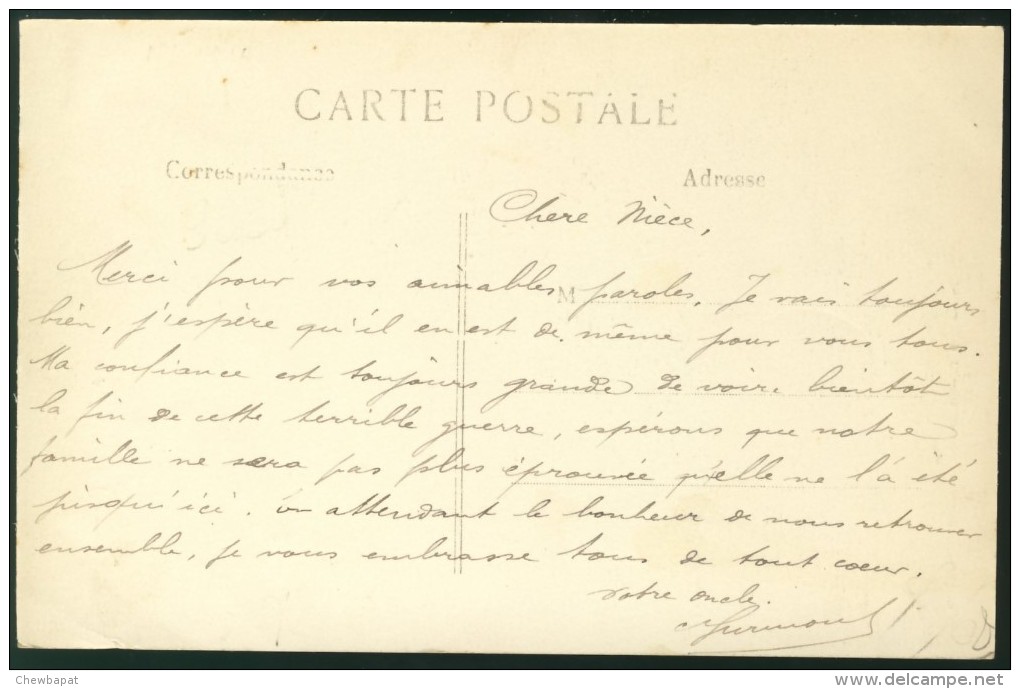 CARTE POSTALE
Correspondance
Adresse
Chère Nièce,
Merci pour vos aimables paroles. Je vais toujours
M
bien, j'espère qu'il en est de même pour vous tous.
Ma confiance est toujours grande de voir bientôt
la fin de cette terrible guerre, espérons que notre
famille ne sera pas plus éprouvée qu'elle ne l'a été
jusqu'ici. En attendant le bonheur de nous retrouver
ensemble, je vous embrasse tous de tout cœur.
Votre oncle.
Chewbapat
www.delcampe.net